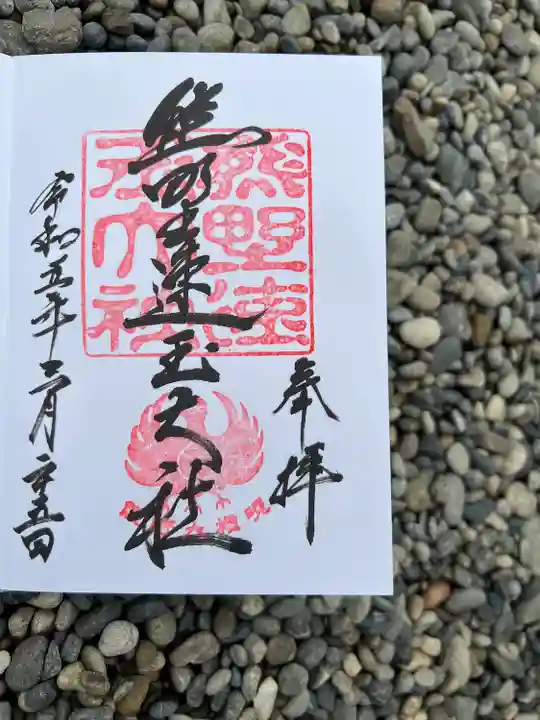 奉拝
熊野速玉大社
熊野速玉大社
令和五年二月二十五日